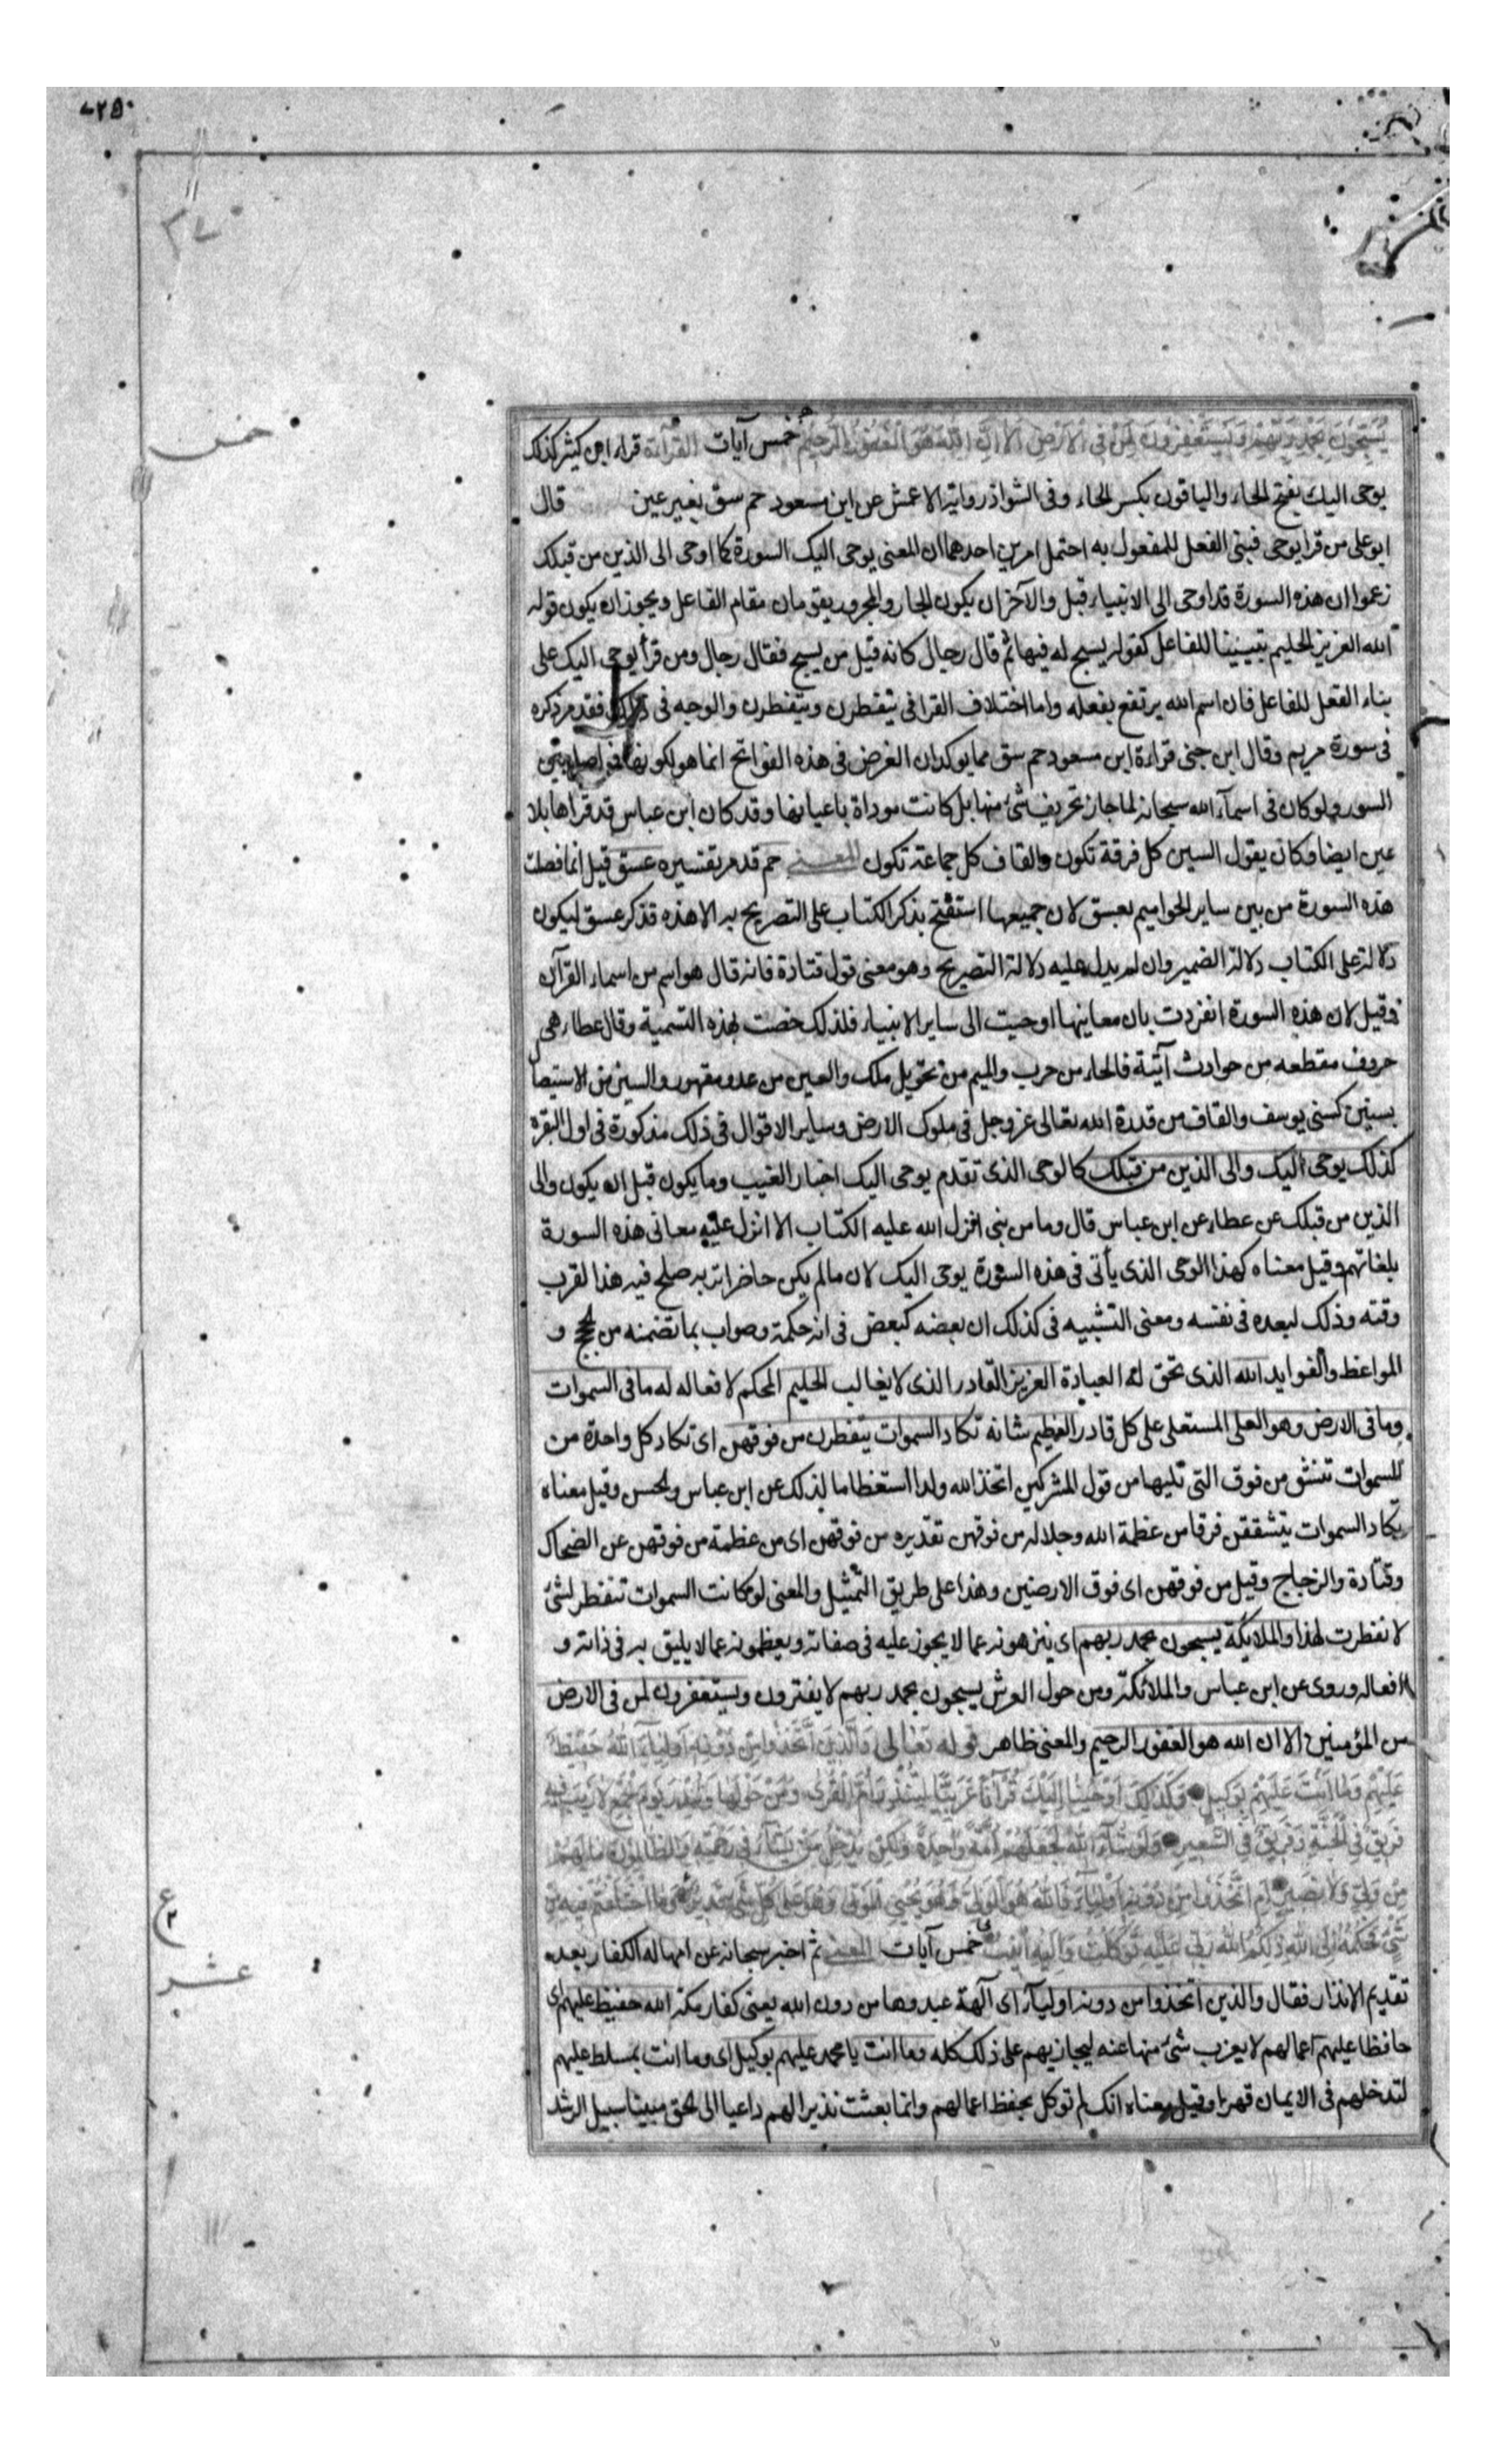 ٢٥٠
٣٧
يُسَبِّحُونَ بِحَمْدِ رَبِّهِمْ وَيَسْتَغْفِرُونَ لِمَنْ فِى الْاَرْضِ اَلَا اِنَّ اللّٰهَ هُوَ الْغَفُورُ الرَّحِيمُ خمس آيات القرآءة قراء ابن كثير كذلك
خمس
يوحى اليك بفتح الحاء والباقون بكسر الحاء وفى الشواذ رواية الاعمش عن ابن مسعود حم سق بغير عين قال
ابو على من قرا يوحى فبنى الفعل للمفعول به احتمل امرين احدهما ان المعنى يوحى اليك السورة كما اوحى الى الذين من قبلك
زعموا ان هذه السورة قد اوحى الى الانبياء قبل والآخر ان يكون الجار والمجرور يقومان مقام الفاعل ويجوز ان يكون قوله
الله العزيز الحليم تبيينا للفاعل كقوله يسبح له فيها ثم قال رجال كانه قيل من يسبح فقال رجال ومن قرأ يوحى اليك على
بناء الفعل للفاعل فان اسم الله يرتفع بفعله واما اختلاف القرا فى تتفطرن وينفطرن والوجه فى ذلك فقد مر ذكره
فى سورة مريم وقال ابن جنى قراءة ابن مسعود حم سق مما يوكد ان الغرض فى هذه الفواتح انما هو لكونها فواصل بين
السور ولو كان فى اسمآء الله سبحانه لما جاز تحريف شئ منها بل كانت موداة باعيانها وقد كان ابن عباس قد قراها بلا
عين ايضا وكان يقول السين كل فرقة تكون والقاف كل جماعة تكون المعنى حم قد مر تفسيره عسق قيل انما فصلت
هذه السورة من بين ساير الحواميم بعسق لان جميعها استفتح بذكر الكتاب على التصريح به الا هذه فذكر عسق ليكون
دلالة على الكتاب دلالة الضمير وان لم يدل عليه دلالة التصريح وهو معنى قول قتادة فانه قال هو اسم من اسماء القرآن
وقيل لان هذه السورة انفردت بان معانيها اوحيت الى ساير الانبياء فلذلك خصت بهذه التسمية وقال عطاء هى
حروف مقطعه من حوادث آتية فالحاء من حرب والميم من تحويل ملك والعين من عدو مقهور والسين من الاستيصا
بسنين كسنى يوسف والقاف من قدرة الله تعالى عز وجل فى ملوك الارض وساير الاقوال فى ذلك مذكورة فى اول البقرة
كذلك يوحى اليك والى الذين من قبلك كالوحى الذى تقدم يوحى اليك اخبار الغيب وما يكون قبل ان يكون والى
الذين من قبلك عن عطاء عن ابن عباس قال وما من نبى انزل الله عليه الكتاب الا انزل عليه معانى هذه السورة
بلغاتهم وقيل معناه كهذا الوحى الذى يأتى فى هذه السورة يوحى اليك لان ما لم يكن حاضرا تربه صلح فيه هذا لقرب
وقته وذلك لبعده فى نفسه ومعنى التشبيه فى كذلك ان بعضه كبعض فى انه حكمة وصواب بما تضمنه من حجج و
المواعظ والفوايد الله الذى تحق له العبادة العزيز القادر الذى لا يغالب الحليم المحكم لافعاله له ما فى السموات
وما فى الارض وهو العلى المستعلى على كل قادر العظيم شانه تكاد السموات يتفطرن من فوقهن اى تكاد كل واحدة من
السموات تنشق من فوق التى تليها من قول المشركين اتخذ الله ولدا استعظاما لذلك عن ابن عباس والحسن وقيل معناه
يكاد السموات يتشققن فرقا من عظمة الله وجلاله من فوقهن تقديره من فوقهن اى من عظمة من فوقهن عن الضحاك
وقتادة والزجاج وقيل من فوقهن اى فوق الارضين وهذا على طريق التمثيل والمعنى لو كانت السموات تنفطر لشئ
لانفطرت لهذا والملايكة يسبحون بحمد ربهم اى ينزهونه عما لا يجوز عليه فى صفاته ويعظمونه عما لا يليق به فى ذاته و
افعاله وروى عن ابن عباس والملائكة ومن حول العرش يسبحون بحمد ربهم لا يفترون ويستغفرون لمن فى الارض
من المؤمنين الا ان الله هو الغفور الرحيم والمعنى ظاهر قوله تعالى وَالَّذِينَ اتَّخَذُوا مِنْ دُونِهِ اَوْلِيَآءَ اللّٰهُ حَفِيظٌ
عَلَيْهِمْ وَمَا اَنْتَ عَلَيْهِمْ بِوَكِيلٍ وَكَذَلِكَ اَوْحَيْنَا اِلَيْكَ قُرْآنًا عَرَبِيًّا لِتُنْذِرَ اُمَّ الْقُرَى وَمَنْ حَوْلَهَا وَتُنْذِرَ يَوْمَ الْجَمْعِ لَا رَيْبَ فِيهِ
فَرِيقٌ فِى الْجَنَّةِ وَفَرِيقٌ فِى السَّعِيرِ وَلَوْ شَآءَ اللّٰهُ لَجَعَلَهُمْ اُمَّةً وَاحِدَةً وَلَكِنْ يُدْخِلُ مَنْ يَشَآءُ فِى رَحْمَتِهِ وَالظَّالِمُونَ مَا لَهُمْ
مِنْ وَلِيٍّ وَلَا نَصِيرٍ اَمِ اتَّخَذُوا مِنْ دُونِهِ اَوْلِيَآءَ فَاللّٰهُ هُوَ الْوَلِىُّ وَهُوَ يُحْيِى الْمَوْتَى وَهُوَ عَلَى كُلِّ شَىْءٍ قَدِيرٌ وَمَا اخْتَلَفْتُمْ فِيهِ مِنْ
ع ٢
شَىْءٍ فَحُكْمُهُ اِلَى اللّٰهِ ذَلِكُمُ اللّٰهُ رَبِّى عَلَيْهِ تَوَكَّلْتُ وَاِلَيْهِ اُنِيبُ خمس آيات المعنى ثم اخبر سبحانه عن امهاله الكفار بعد
عشر
تقديم الانذار فقال والذين اتخذوا من دونه اوليآء اى آلهة عبدوها من دون الله يعنى كفار مكة الله حفيظ عليهم اى
حافظ عليهم اعمالهم لا يعزب شئ منها عنه ليجازيهم على ذلك كله وما انت يا محمد عليهم بوكيل اى وما انت بمسلط عليهم
لتدخلهم فى الايمان قهرا وقيل معناه انك لم توكل بحفظ اعمالهم وانما بعثت نذيرا لهم داعيا الى الحق مبينا سبيل الرشد